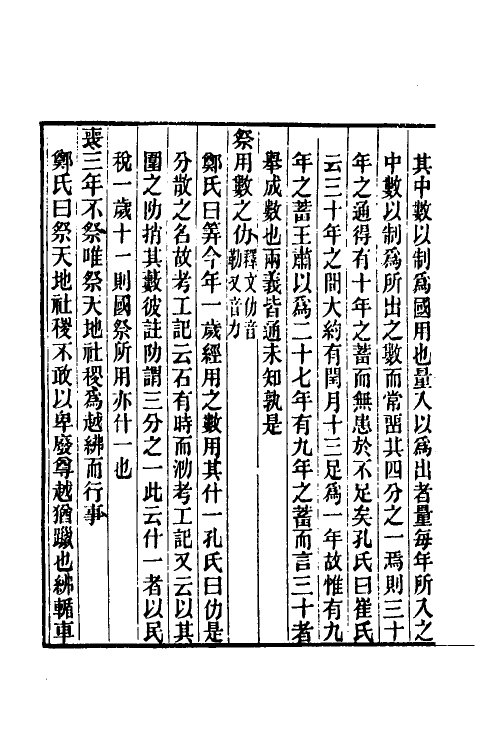 其中數以制爲國用也量入以爲出者量每年所入之
中數以制爲所出之數而常畱其四分之一焉則三十
年之通得有十年之蓄而無患於不足矣孔氏曰崔氏
云三十年之間大約有閏月十三足爲一年故惟有九
年之蓄王肅以爲二十七年有九年之蓄而言三十者
舉成數也兩義皆通未知孰是
祭用數之仂釋文仂音勒又音力
鄭氏曰筭今年一歲經用之數用其什一孔氏曰仂是
分散之名故考工記云石有時而泐考工記又云以其
圍之阞捎其藪彼註阞謂三分之一此云什一者以民
稅一歲十一則國祭所用亦什一也
喪三年不祭唯祭天地社稷爲越紼而行事
鄭氏曰祭天地社稷不敢以卑廢尊越猶躐也紼輴車